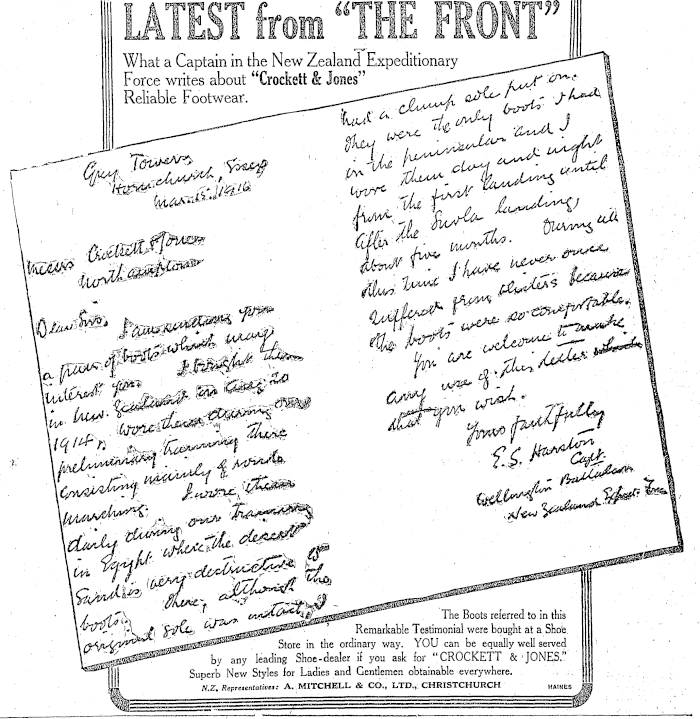 LATEST from "THE FRONT"
What a Captain in the New Zealand Expeditionary
Force writes about "Crockett & Jones"
Reliable Footwear.
Grey Towers
Hornchurch, Essex
Mar. 15. 1916
Messrs Crockett & Jones
Northampton
Dear Sirs, I am sending you
a pair of boots which may
interest you. I bought them
in New Zealand in Aug 20
1914, wore them during our
preliminary training there
consisting mainly of road
marching. I wore them
daily during our training
in Egypt where the desert
Sand is very destructive to
boots. there, although the
original sole was intact, I
had a clump sole put on.
They were the only boots I had
in the peninsular and I
wore them day and night
from the first landing until
after the Suvla landing,
about five months. During all
this time I have never once
suffered from blisters because
the boots were so comfortable.
You are welcome to make
any use of this letter
that you wish.
Yours faithfully
E. S. Harston
Capt.
Wellington Battalion
New Zealand Exped. Force
The Boots referred to in this
Remarkable Testimonial were bought at a Shoe
Store in the ordinary way. YOU can be equally well served
by any leading Shoe-dealer if you ask for "CROCKETT & JONES."
Superb New Styles for Ladies and Gentlemen obtainable everywhere.
N.Z. Representatives: A. MITCHELL & CO., LTD., CHRISTCHURCH
HAINES